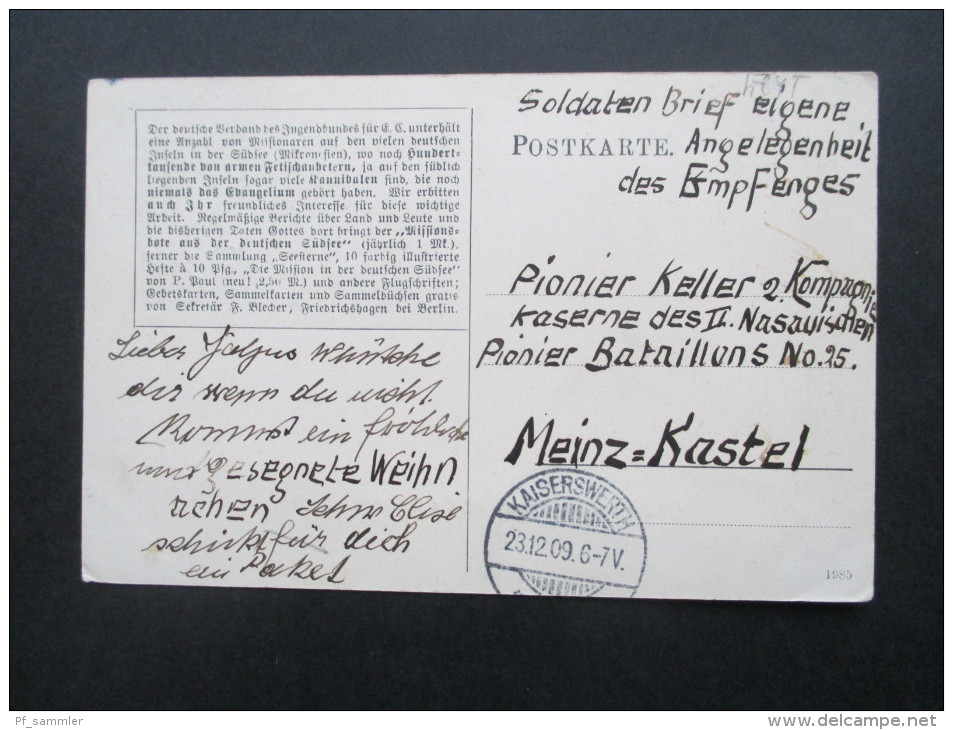 Der deutsche Verband des Jugendbundes für E. C. unterhält
eine Anzahl von Missionaren auf den vielen deutschen
Inseln in der Südsee (Mikronesien), wo noch Hundert-
tausende von armen Fetischanbetern, ja auf den südlich
liegenden Inseln sogar viele Kannibalen sind, die noch
niemals das Evangelium gehört haben. Wir erbitten
auch Ihr freundliches Interesse für diese wichtige
Arbeit. Regelmäßige Berichte über Land und Leute und
die bisherigen Taten Gottes dort bringt der „Missions-
bote aus der deutschen Südsee“ (jährlich 1 Mk.),
ferner die Sammlung „Seesterne“, 10 farbig illustrierte
Hefte à 10 Pfg., „Die Mission in der deutschen Südsee“
von P. Paul (neu! 2,50 M.) und andere Flugschriften;
Gebetskarten, Sammelkarten und Sammelbüchsen gratis
von Sekretär F. Blecher, Friedrichshagen bei Berlin.
Lieber wünsche
dir wenn du nicht
Kommst ein fröhliche
und gesegnete Weihn
achen Elise
schickt für dich
ein Paket
Soldaten Brief eigene
POSTKARTE. Angelegenheit
des Empfenges
Pionier Keller 2. Kompagnie
Kaserne des II. Nasauischen
Pionier Bataillons No. 25.
Meinz=Kastel
KAISERSWERTH
23.12.09. 6-7V.
1985
Pf_sammler
www.delcampe.net